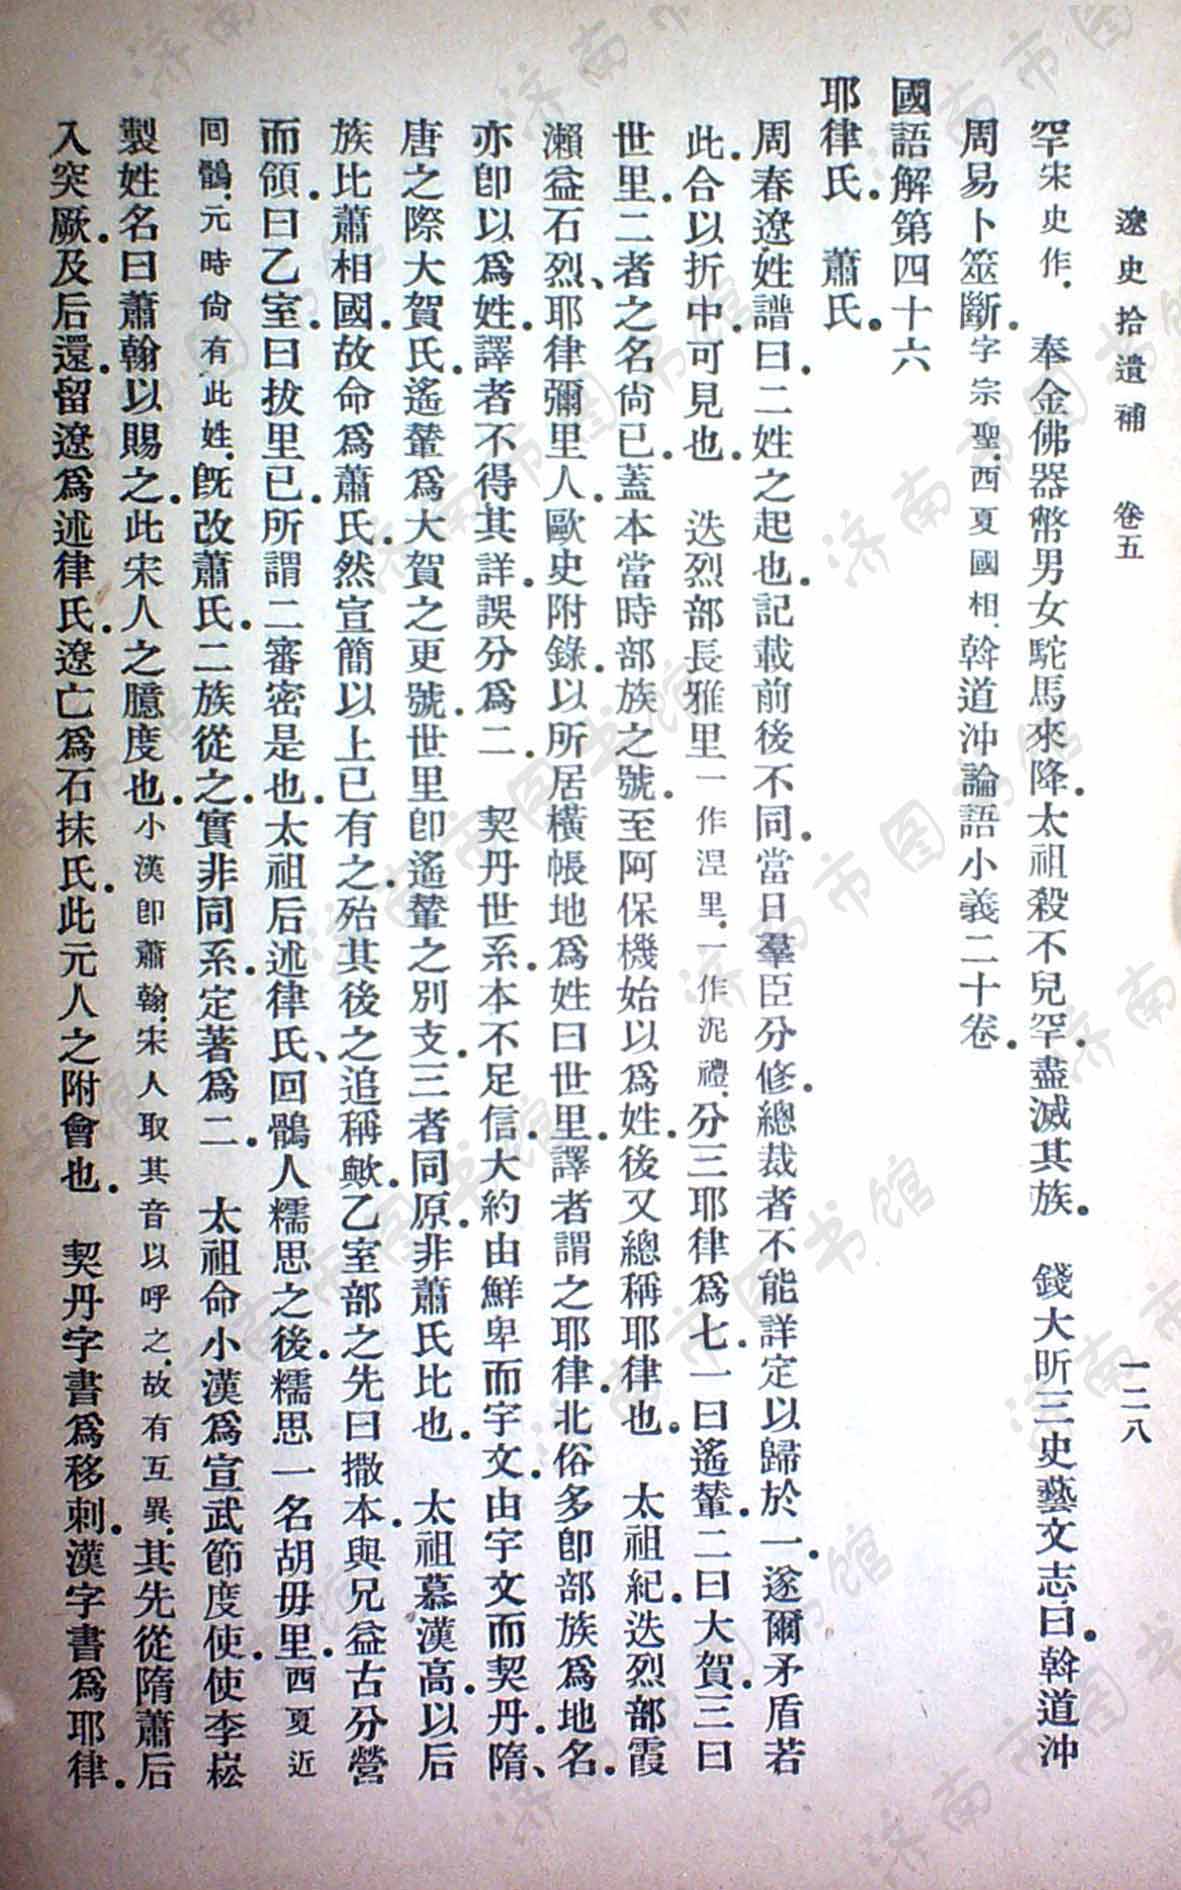 遼史拾遺補　卷五　一二八
罕宋史作.　奉金佛器幣男女駝馬來降.太祖殺不兒罕.盡滅其族.　錢大昕三史藝文志.曰.斡道沖
周易卜筮斷.字宗聖.西夏國相.斡道沖論語小義二十卷.
國語解第四十六
耶律氏.　蕭氏.
周春遼姓譜曰.二姓之起也.記載前後不同.當日羣臣分修.總裁者不能詳定以歸於一.遂爾矛盾若
此.合以折中.可見也.　迭烈部長雅里一作涅里.一作泥禮.分三耶律爲七.一曰遙輦.二曰大賀.三曰
世里.二者之名尙已.蓋本當時部族之號.至阿保機始以爲姓.後又總稱耶律也.　太祖紀.迭烈部霞
瀨益石烈、耶律彌里人.歐史附錄.以所居橫帳地爲姓曰世里.譯者謂之耶律.北俗多卽部族爲地名.
亦卽以爲姓.譯者不得其詳.誤分爲二.　契丹世系.本不足信.大約由鮮卑而宇文.由宇文而契丹.隋、
唐之際大賀氏.遙輦爲大賀之更號.世里卽遙輦之別支.三者同原.非蕭氏比也.　太祖慕漢高.以后
族比蕭相國.故命爲蕭氏.然宣簡以上已有之.殆其後之追稱歟.乙室部之先曰撒本.與兄益古分營
而領.曰乙室.曰拔里已.所謂二審密是也.太祖后述律氏、回鶻人糯思之後.糯思一名胡毋里.西夏近
回鶻.元時尙有此姓.旣改蕭氏.二族從之.實非同系.定著爲二.　太祖命小漢爲宣武節度使.使李崧
製姓名曰蕭翰以賜之.此宋人之臆度也.小漢卽蕭翰.宋人取其音以呼之.故有互異.其先從隋蕭后
入突厥.及后還.留遼爲述律氏.遼亡爲石抹氏.此元人之附會也.　契丹字書爲移刺.漢字書爲耶律.